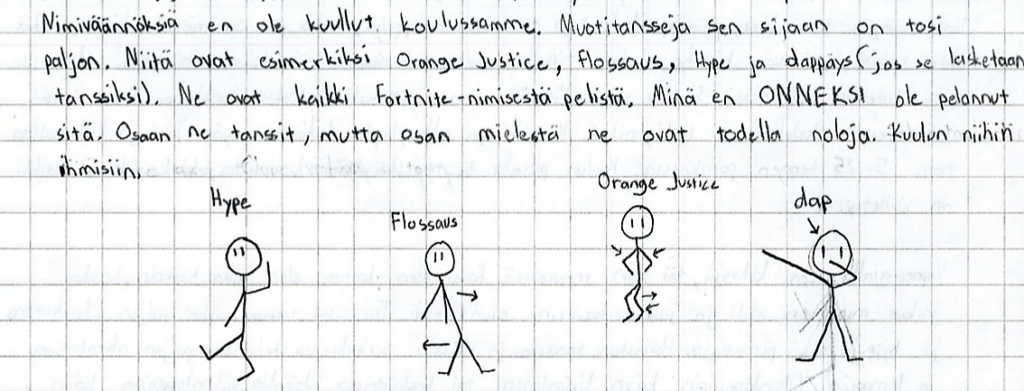 Nimiväännöksiä en ole kuullut koulussamme. Muotitansseja sen sijaan on tosi
paljon. Niitä ovat esimerkiksi Orange Justice, flossaus, Hype ja dappäys (jos se lasketaan
tanssiksi). Ne ovat kaikki Fortnite-nimisestä pelistä. Minä en ONNEKSI ole pelannut
sitä. Osaan ne tanssit, mutta osan mielestä ne ovat todella noloja. Kuulun niihin
ihmisiin.
Hype
Flossaus
Orange Justice
dap